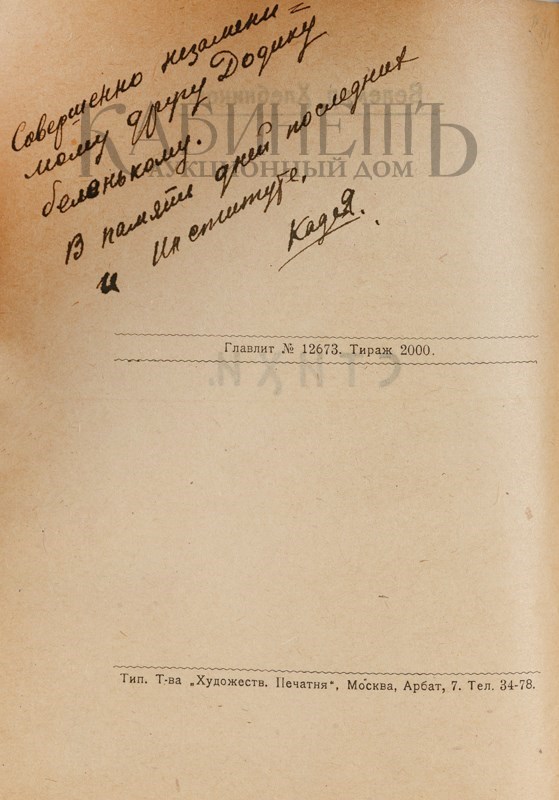 Совершенно незамени=
мому другу Додику
беленькому.
В память дней последних
и Институте.
Кадея.
КАБИНЕТЪ
АУКЦИОННЫЙ ДОМ
Главлит № 12673. Тираж 2000.
СТИХИ.
Тип. Т-ва „Художеств. Печатня“, Москва, Арбат, 7. Тел. 34-78.